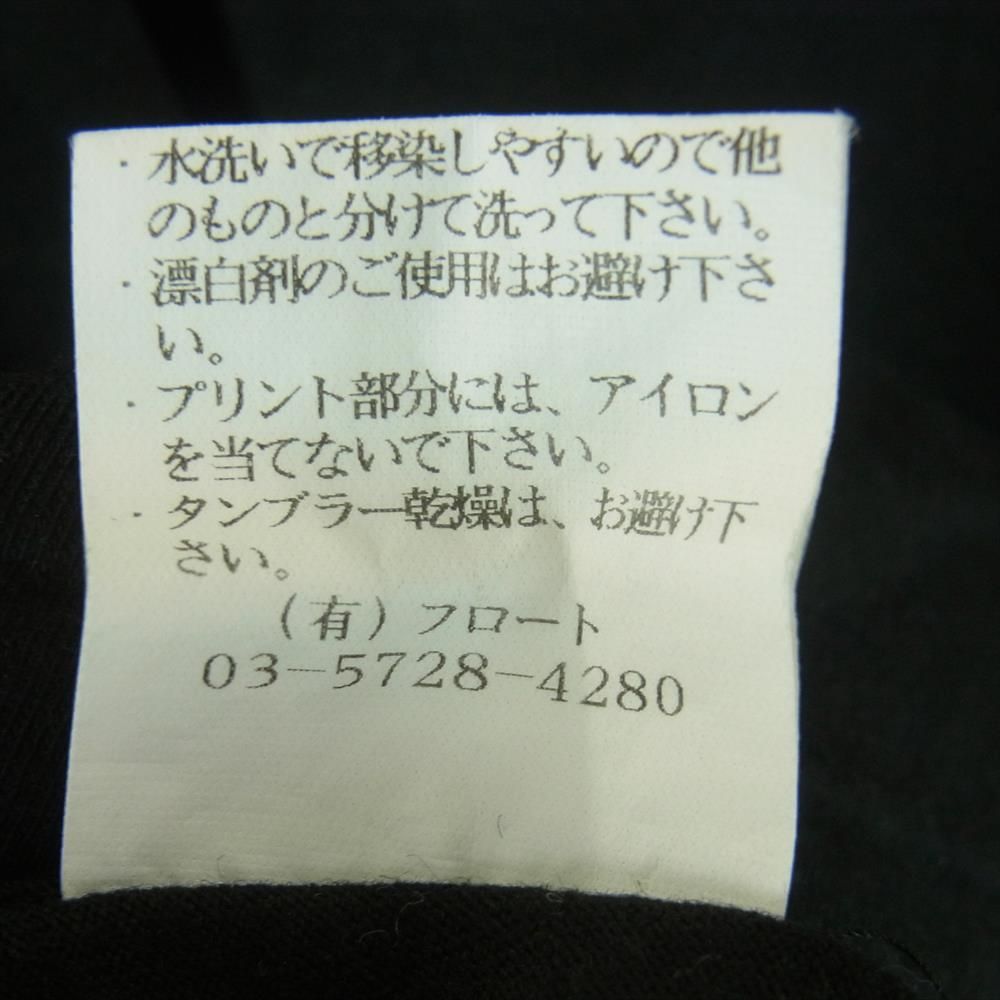 ・水洗いで移染しやすいので他
のものと分けて洗って下さい。
・漂白剤のご使用はお避け下さ
い。
・プリント部分には、アイロン
を当てないで下さい。
・タンブラー乾燥は、お避け下
さい。
（有）フロート
03-5728-4280